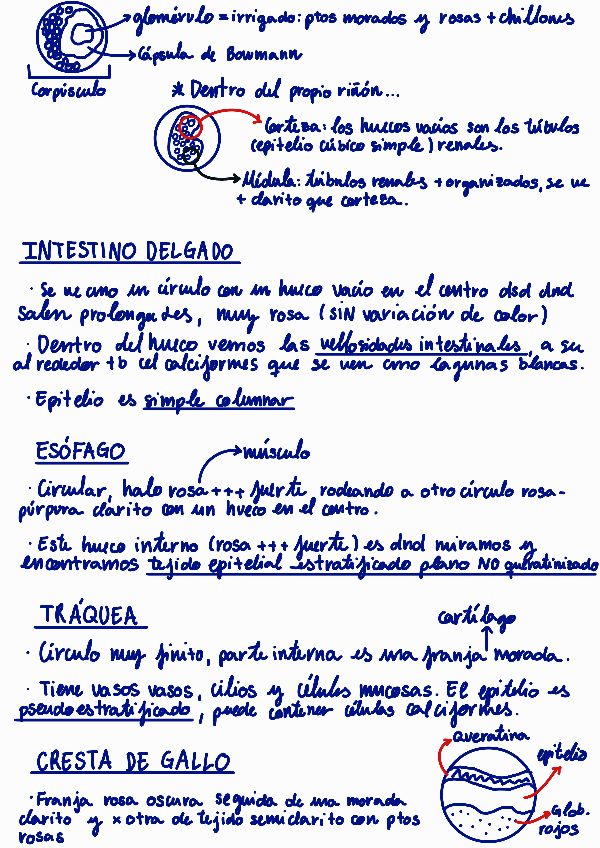 glomérulo = irrigado: ptos morados y rosas + chillones
Cápsula de Bowmann
Corpúsculo
* Dentro del propio riñón...
Corteza: los huecos vacíos son los túbulos
(epitelio cúbico simple) renales.
Médula: túbulos renales + organizados, se ve
+ clarito que corteza.
INTESTINO DELGADO
· Se ve cmo un círculo con un hueco vacío en el centro dsd dnd
salen prolongades, muy rosa (SIN variación de color)
· Dentro del hueco vemos las vellosidades intestinales, a su
alrededor tb cel calciformes que se ven cmo lagunas blancas.
· Epitelio es simple columnar
ESÓFAGO
músculo
· Circular, halo rosa +++ fuerte rodeando a otro círculo rosa-
púrpura clarito con un hueco en el centro.
· Este hueco interno (rosa +++ fuerte) es dnd miramos y
encontramos tejido epitelial estratificado plano NO queratinizado
TRÁQUEA
cartílago
· Círculo muy finito, parte interna es una franja morada.
· Tiene vasos vasos, cilios y células mucosas. El epitelio es
pseudoestratificado, puede contener células calciformes.
CRESTA DE GALLO
queratina
epitelio
Glob.
rojos
· Franja rosa oscura seguida de una morada
clarito y x otra de tejido semiclarito con ptos
rosas